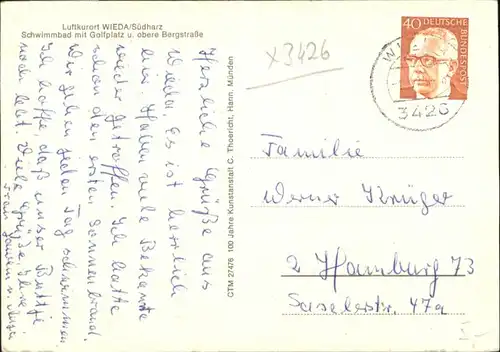 Luftkurort WIEDA/Südharz
Schwimmbad mit Golfplatz u. obere Bergstraße
Herzliche Grüße aus
Wieda. Es ist herrlich
hier. Haben viele Bekannte
wieder getroffen. Ich hatte
schon den ersten Sonnenbrand.
Wir gehen jeden Tag schwimmen.
Ich hoffe, daß unser Puttje
noch lebt. Viele Grüße Ihre
Frau u.
CTM 27476 100 Jahre Kunstanstalt C. Thoericht, Hann. Münden
x3426
40 DEUTSCHE BUNDESPOST
WI
3426
Familie
Werner Krüger
2 Hamburg 73
Saselerstr. 47a